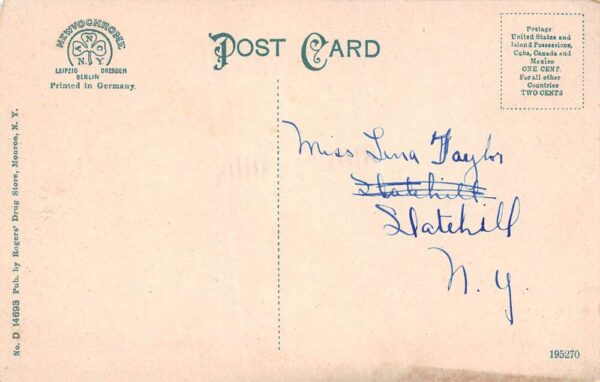 NEWVOCHROME
A N C
N.Y.
LEIPZIG DRESDEN
BERLIN
Printed in Germany.
POST CARD
Postage
United States and
Island Possessions,
Cuba, Canada and
Mexico
ONE CENT.
For all other
Countries
TWO CENTS
No. D 14693 Pub. by Rogers' Drug Store, Monroe, N. Y.
Miss Lena Taylor
Slatehill
Slatehill
N. Y.
195270